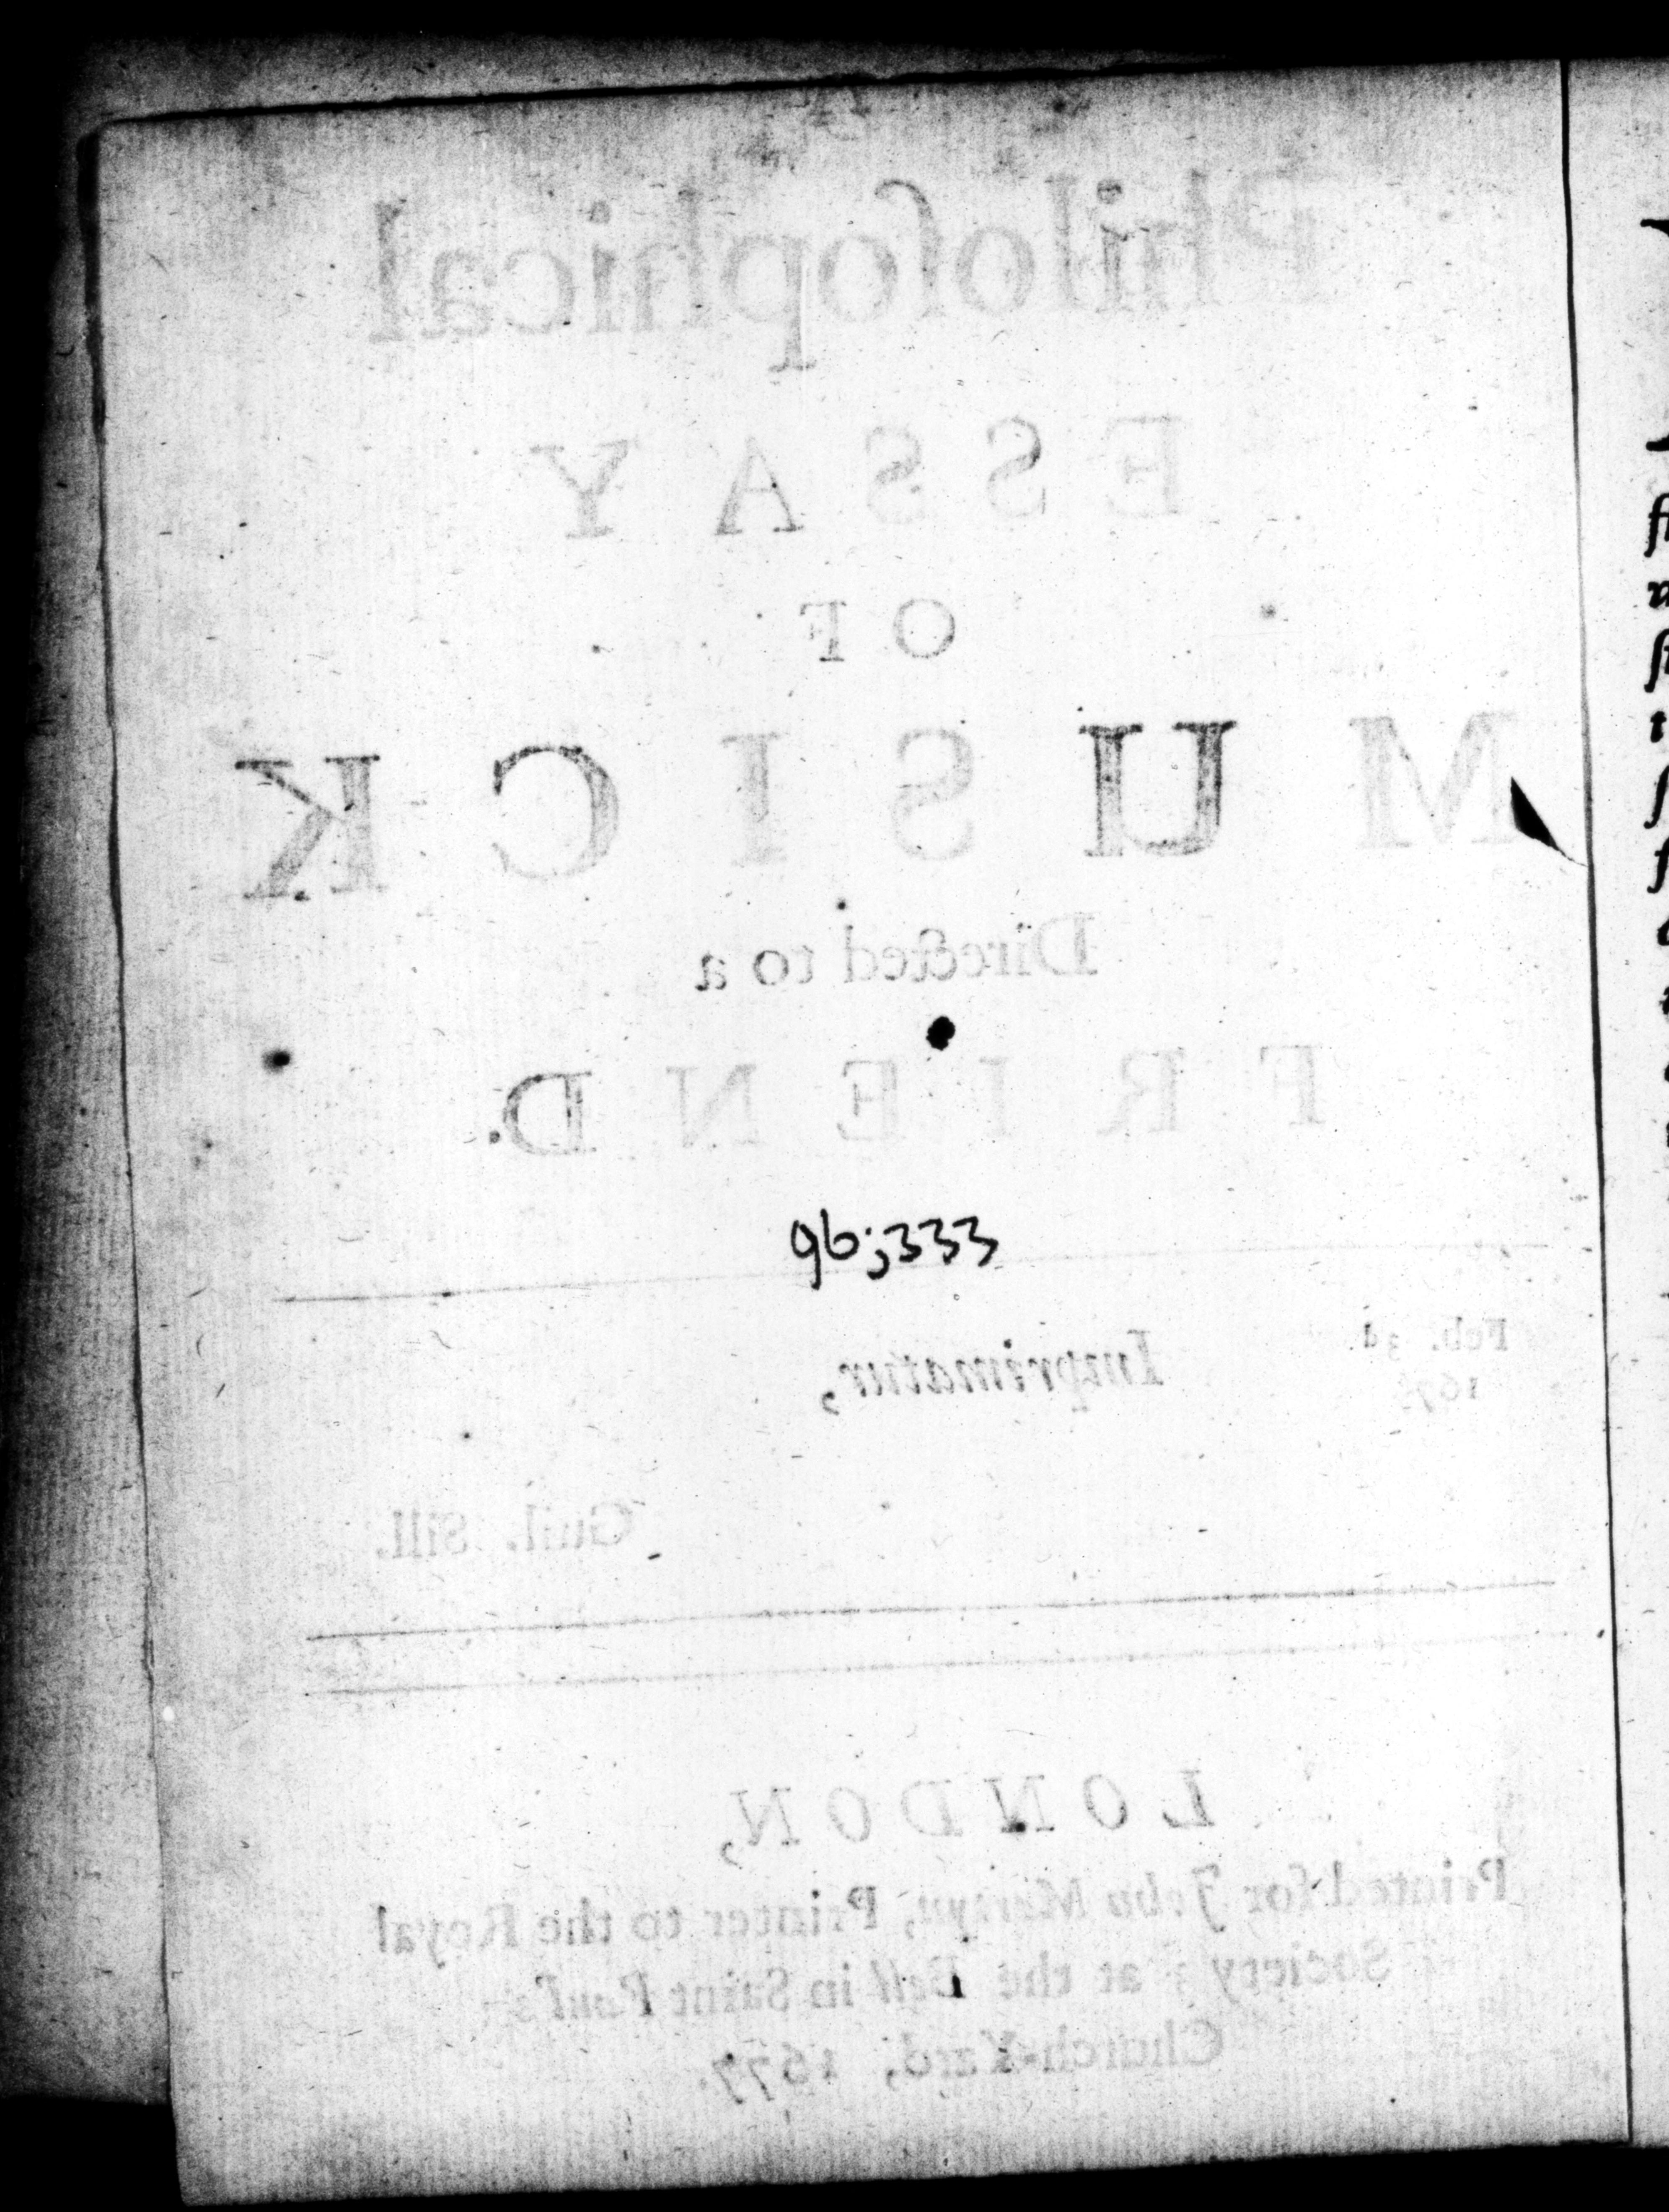 A
Philoſophical
ESSAY
OF
MUSICK
Directed to a
FRIEND.
96;333
Feb. 3d.
Imprimatur,
Guil. Sill.
LONDON,
Printed for John Martyn, Printer to the Royal
Society; at the Bell in Saint Paul's-
Church-Yard, 1677.